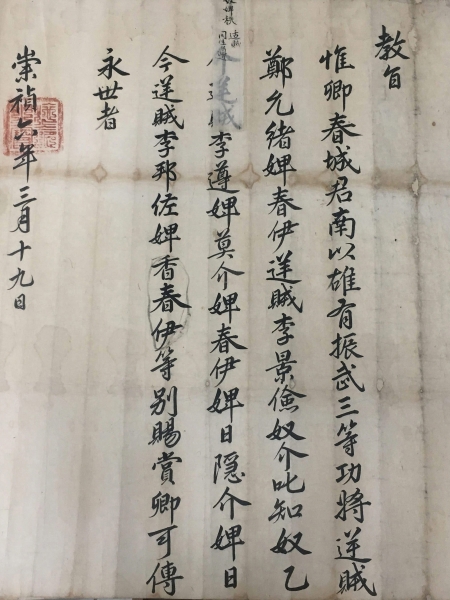 教旨
惟卿春城君南以雄有振武三等功將逆賊
鄭允緒婢春伊逆賊李景儉奴介叱知奴乙
李遵婢莫介婢春伊婢日隱介婢日
今逆賊李邦佐婢香春伊等别賜賞卿可傳
永世者
崇禎六年三月十九日